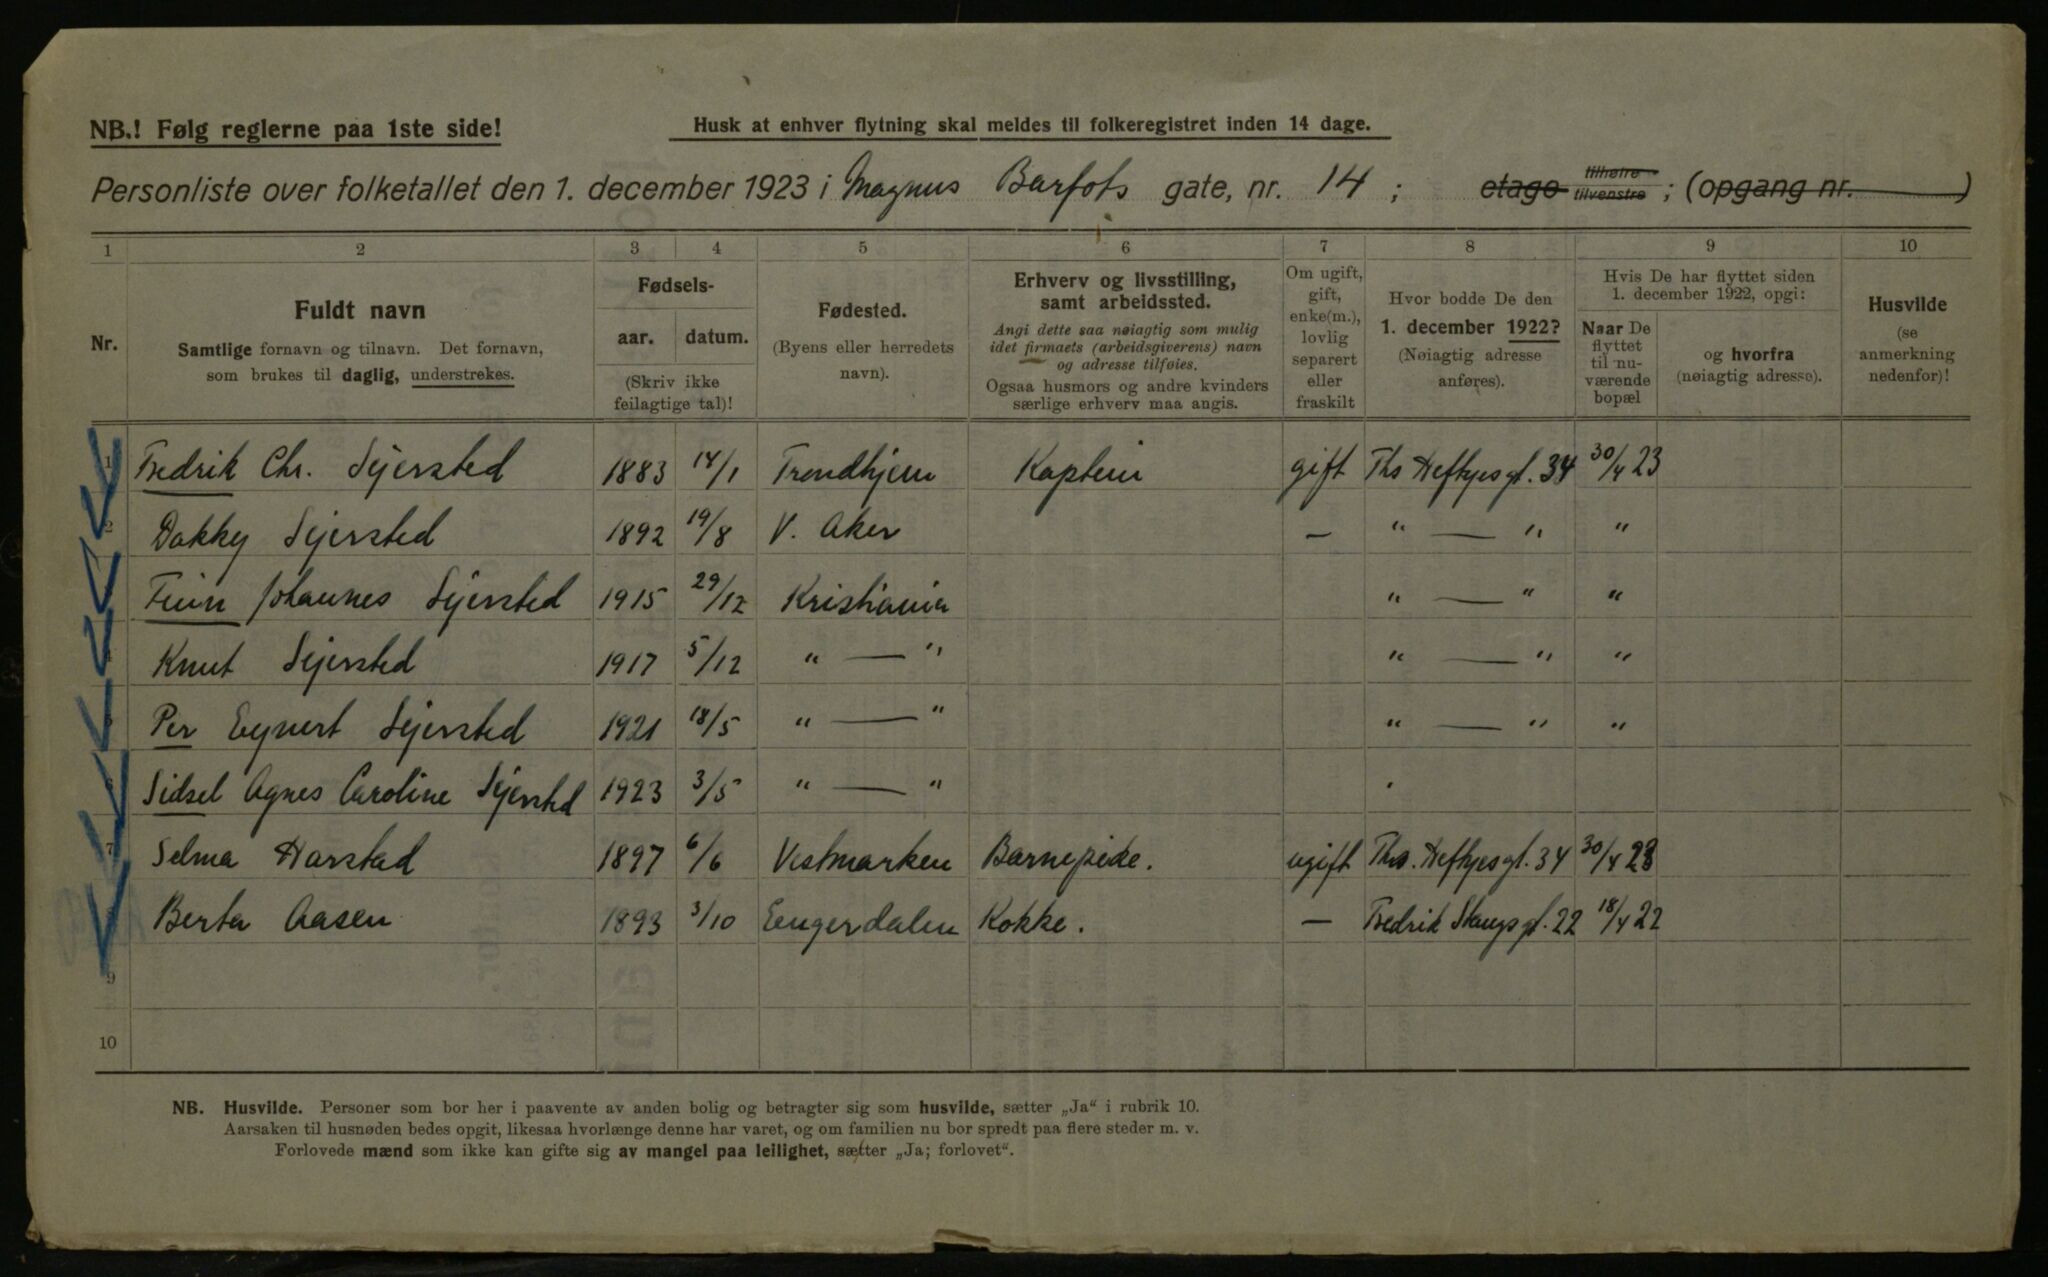 NB.! Følg reglerne paa 1ste side!
Husk at enhver flytning skal meldes til folkeregistret inden 14 dage.
Personliste over folketallet den 1. december 1923 i Magnus Barfots gate, nr. 14 ; etage tilhøire tilvenstre ; (opgang nr. )
1 2 3 4 5 6 7 8 9 10
Nr.
Fuldt navn
Samtlige fornavn og tilnavn. Det fornavn,
som brukes til daglig, understrekes.
Fødsels-
aar. datum.
(Skriv ikke
feilagtige tal)!
Fødested.
(Byens eller herredets
navn).
Erhverv og livsstilling,
samt arbeidssted.
Angi dette saa nøiagtig som mulig
idet firmaets (arbeidsgiverens) navn
og adresse tilføies.
Ogsaa husmors og andre kvinders
særlige erhverv maa angis.
Om ugift,
gift,
enke(m.),
lovlig
separert
eller
fraskilt
Hvor bodde De den
1. december 1922?
(Nøiagtig adresse
anføres).
Hvis De har flyttet siden
1. december 1922, opgi:
Naar De
flyttet
til nu-
værende
bopæl
og hvorfra
(nøiagtig adresse).
Husvilde
(se
anmerkning
nedenfor)!
1 Fredrik Chr. Sejersted 1883 14/1 Trondhjem Kaptein gift Ths Heftyesgt. 34 30/4 23
2 Dakky Sejersted 1892 19/8 V. Aker — " — " "
Finn Johannes Sejersted 1915 29/12 Kristiania " — " "
4 Knut Sejersted 1917 5/12 " — " " — " "
5 Per Eyvert Sejersted 1921 18/5 " — " " — " "
6 Sidsel Agnes Caroline Sejersted 1923 3/5 " — "
7 Selma Harstad 1897 6/6 Vestmarken Barnepike. ugift Ths. Heftyesgt. 34 30/4 23
8 Berta Aasen 1893 3/10 Engerdalen Kokke. — Fredrik Stangsgt. 22 18/4 22
9
10
NB. Husvilde. Personer som bor her i paavente av anden bolig og betragter sig som husvilde, sætter „Ja“ i rubrik 10.
Aarsaken til husnøden bedes opgit, likesaa hvorlænge denne har varet, og om familien nu bor spredt paa flere steder m. v.
Forlovede mænd som ikke kan gifte sig av mangel paa leilighet, sætter „Ja; forlovet“.